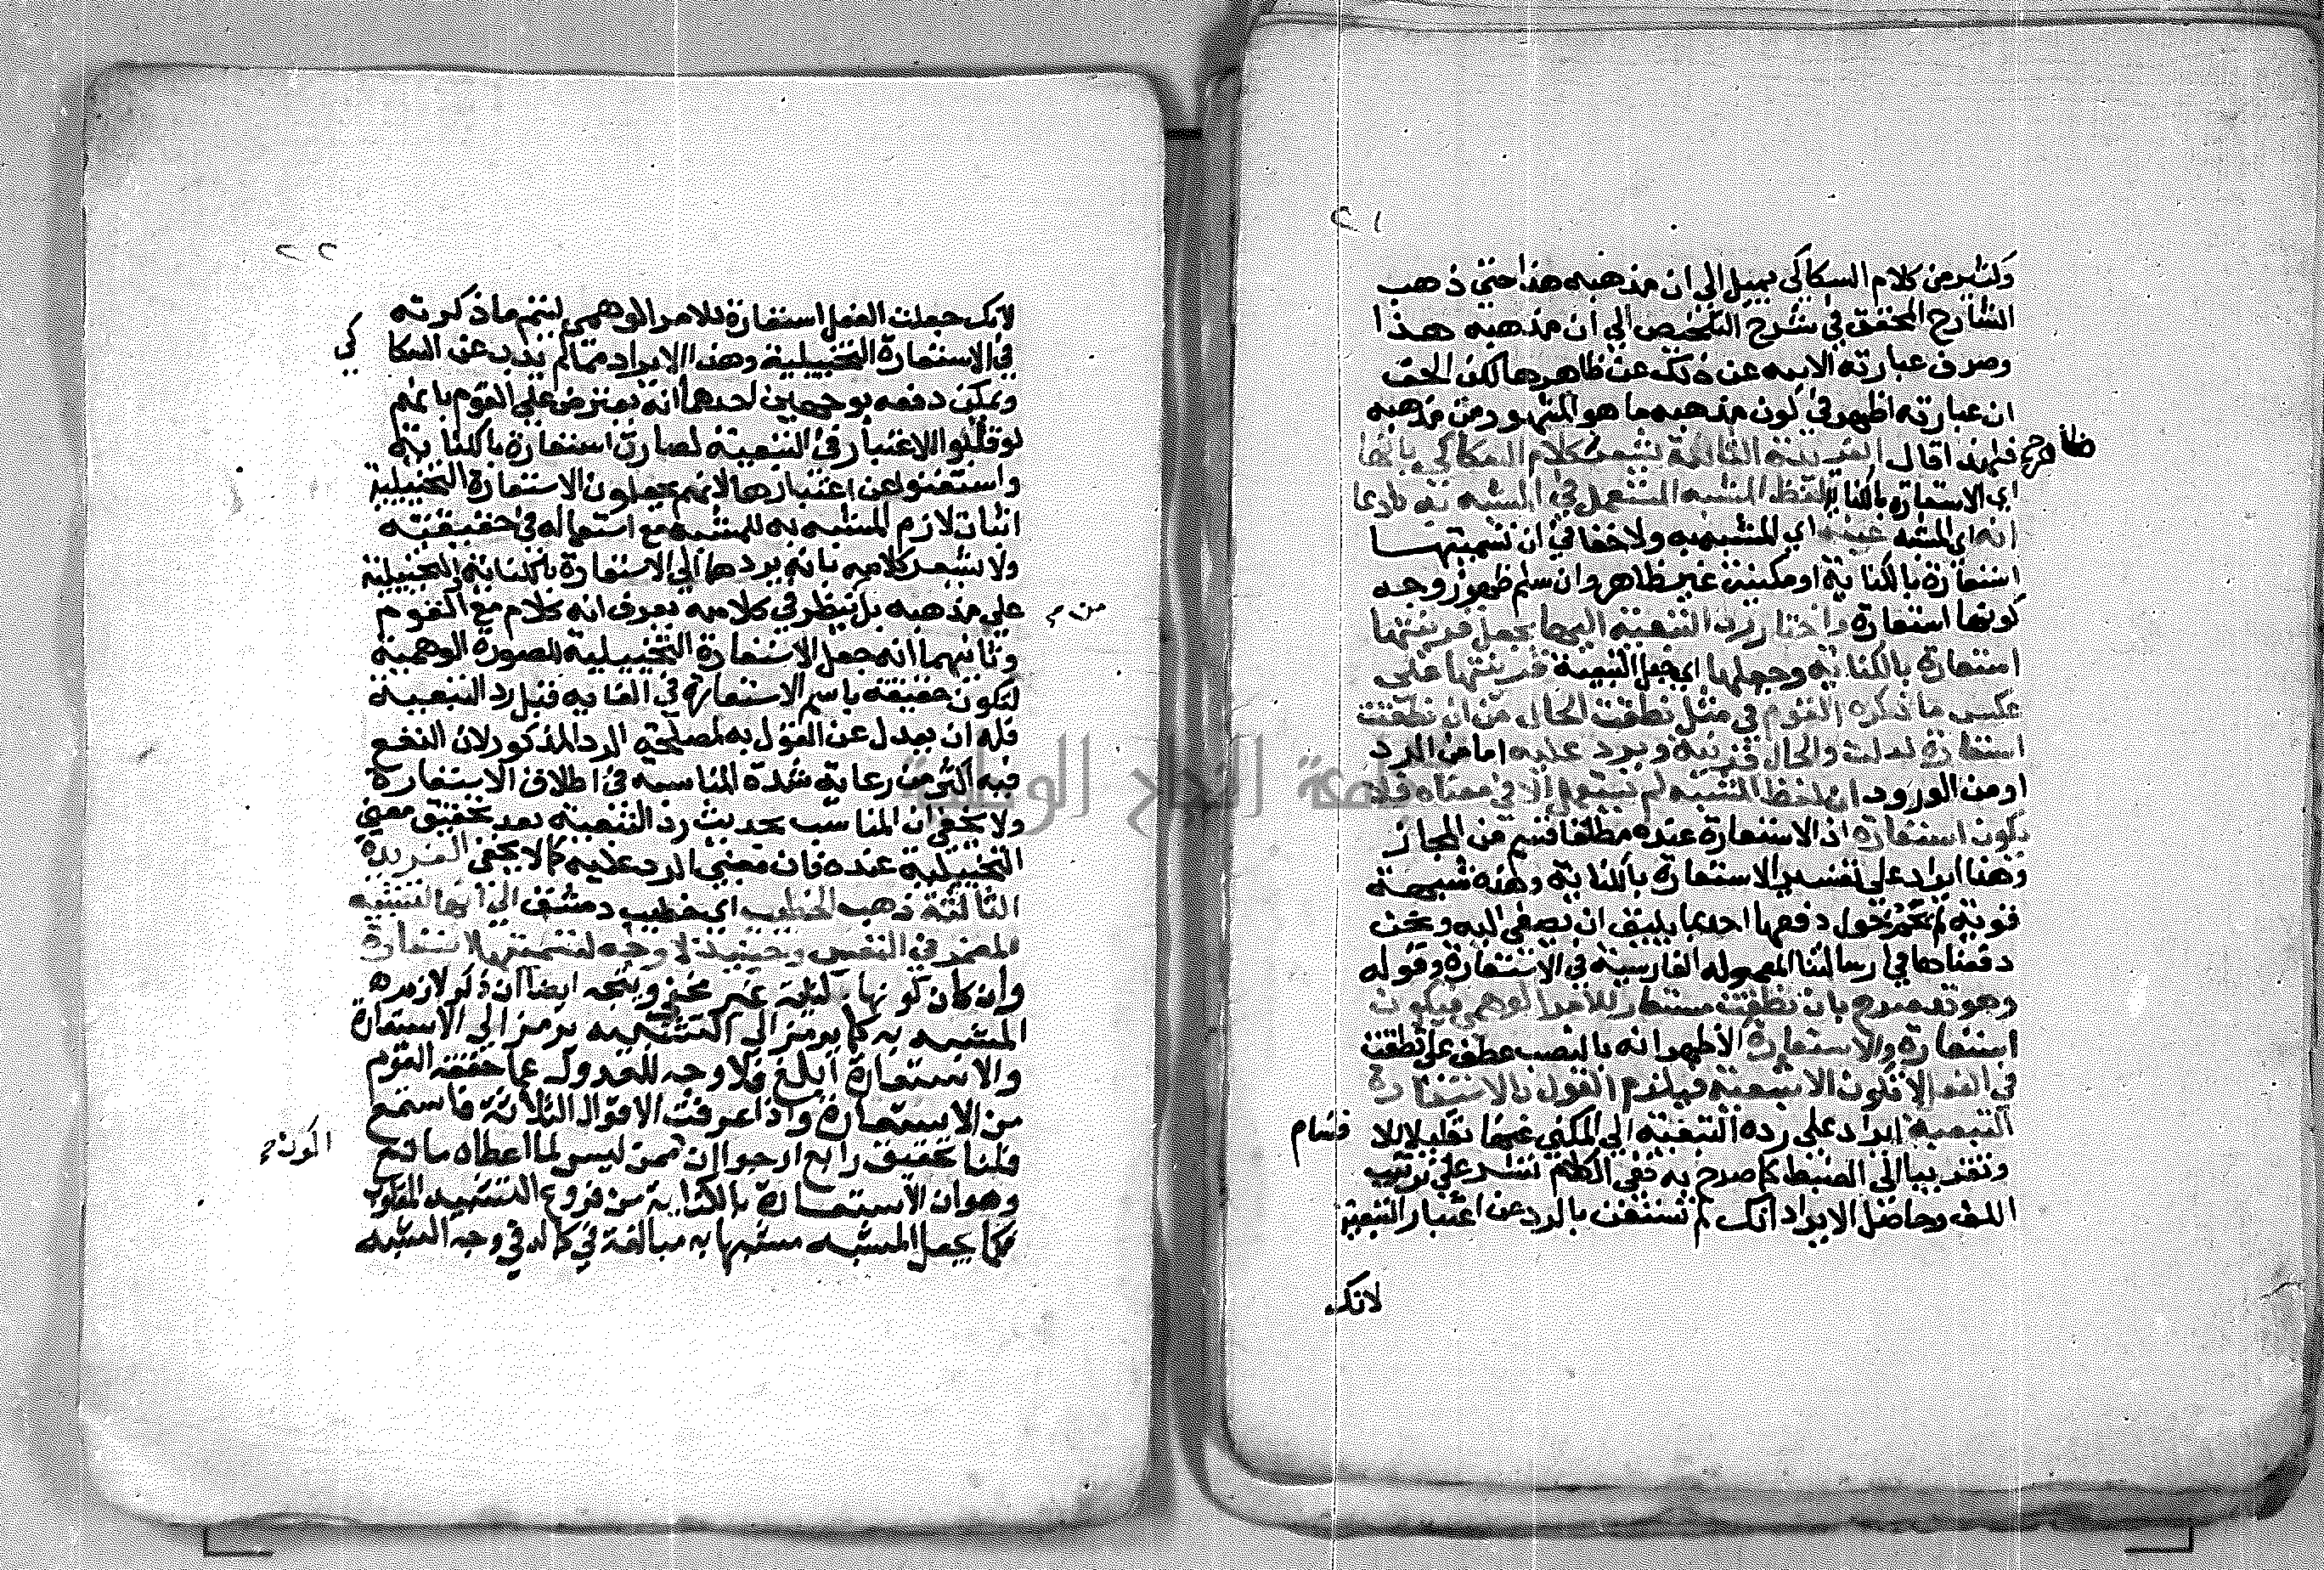 ٢١
وكثير من كلام السكاكي يميل الي ان مذهبه هذا حتى ذهب
الشارح المحقق في شرح التلخيص الي ان مذهبه هذا
وصرف عبارته الابيه عن ذلك عن ظاهرها لكن الحق
ان عبارته اظهر في كون مذهبه ما هو المشهور من مذهبه
فلهذا قال الفريدة الثانية يشعر كلام السكاكي بانها
اي الاستعارة بالكناية لفظ المشبه المستعمل في المشبه به بادعا
انه اي المشبه عينه اي المشبه به ولا خفا في ان تسميتها
استعارة بالكناية او مكنية غير ظاهر وان سلم ظهور وجه
كونها استعارة واختار رد التبعية اليها بجعل قرينتها
استعارة بالكناية وجعلها اي جعل التبعية قرينتها على
عكس ما ذكره القوم في مثل نطقت الحال من ان نطقت
استعارة لدلت والحال قرينة ويرد عليه اما من الرد
او من الورود ان لفظ المشبه لم يستعمل الا في معناه فلا
تكون استعارة اذ الاستعارة عنده مطلقا قسم من المجاز
وهذا ايراد على تفسير الاستعارة بالكناية وهذه شبهة
قوية لم يحم حول دفعها احد بما يليق ان يصغى اليه ونحن
دفعناها في رسالتنا المعمولة الفارسية في الاستعارة وقوله
وهو قد صرح بان نطقت مستعار للامر الوهمي فيكون
استعارة والاستعارة الاظهر انه بالنصب عطف على نطقت
في الفعل لا تكون الا تبعية فيلزم القول بالاستعارة
التبعية ايراد على رده التبعية الي المكني عنها تقليلا للاقسام
وتقريبا الى الضبط كما صرح به ففي الكلام نشر على ترتيب
اللف وحاصل الايراد انك لم تستغن بالرد عن اعتبار التبعية
لانك
٢٢
لانك جعلت الفعل استعارة للامر الوهمي ليتم ما ذكرته
في الاستعارة التخييلية وهذا الايراد مما لم يذب عن السكاكي
ويمكن دفعه بوجهين احدهما انه يعترض على القوم بانهم
لو قللوا الاعتبار في التبعية لصارت استعارة بالكناية
واستغنوا عن اعتبارها لانهم يجعلون الاستعارة التخييلية
اثبات لازم المشبه به للمشبه مع استعماله في حقيقته
ولا يشعر كلامه بانه يردها الي الاستعارة بالكناية والتخييلية
على مذهبه بل من ينظر في كلامه يعرف انه كلام مع القوم
وثانيهما انه جعل الاستعارة التخييلية للصورة الوهمية
لتكون حقيقة باسم الاستعارة في الغاية قبل رد التبعية
فله ان يعدل عن القول به لمصلحة الرد المذكور لان النفع
فيه اكثر من رعاية شدة المناسبة في اطلاق الاستعارة
ولا يخفى ان المناسب بحديث رد التبعية بعد تحقيق معنى
التخييلية عنده فان معنى الرد عليه كما لا يخفى الفريدة
الثالثة ذهب الخطيب اي خطيب دمشق الى انها التشبيه
المضمر في النفس وحينئذ لا وجه لتسميتها استعارة
وان كان كونها كناية غير مخفي ويتجه ايضا ان ذكر لازم
المشبه به كما يرمز الى التشبيه يرمز الى الاستعارة
والاستعارة ابلغ فلا وجه للعدول عما حققه القوم
من الاستعارة واذا عرفت الاقوال الثلاثة فاستمع
فلنا تحقيق رابع ارجو ان تكون ممن ليس لما اعطاه مانع
وهو ان الاستعارة بالكناية من فروع التشبيه المقلوب
فكما يجعل المشبه مشبها به مبالغة في كماله في وجه الشبه